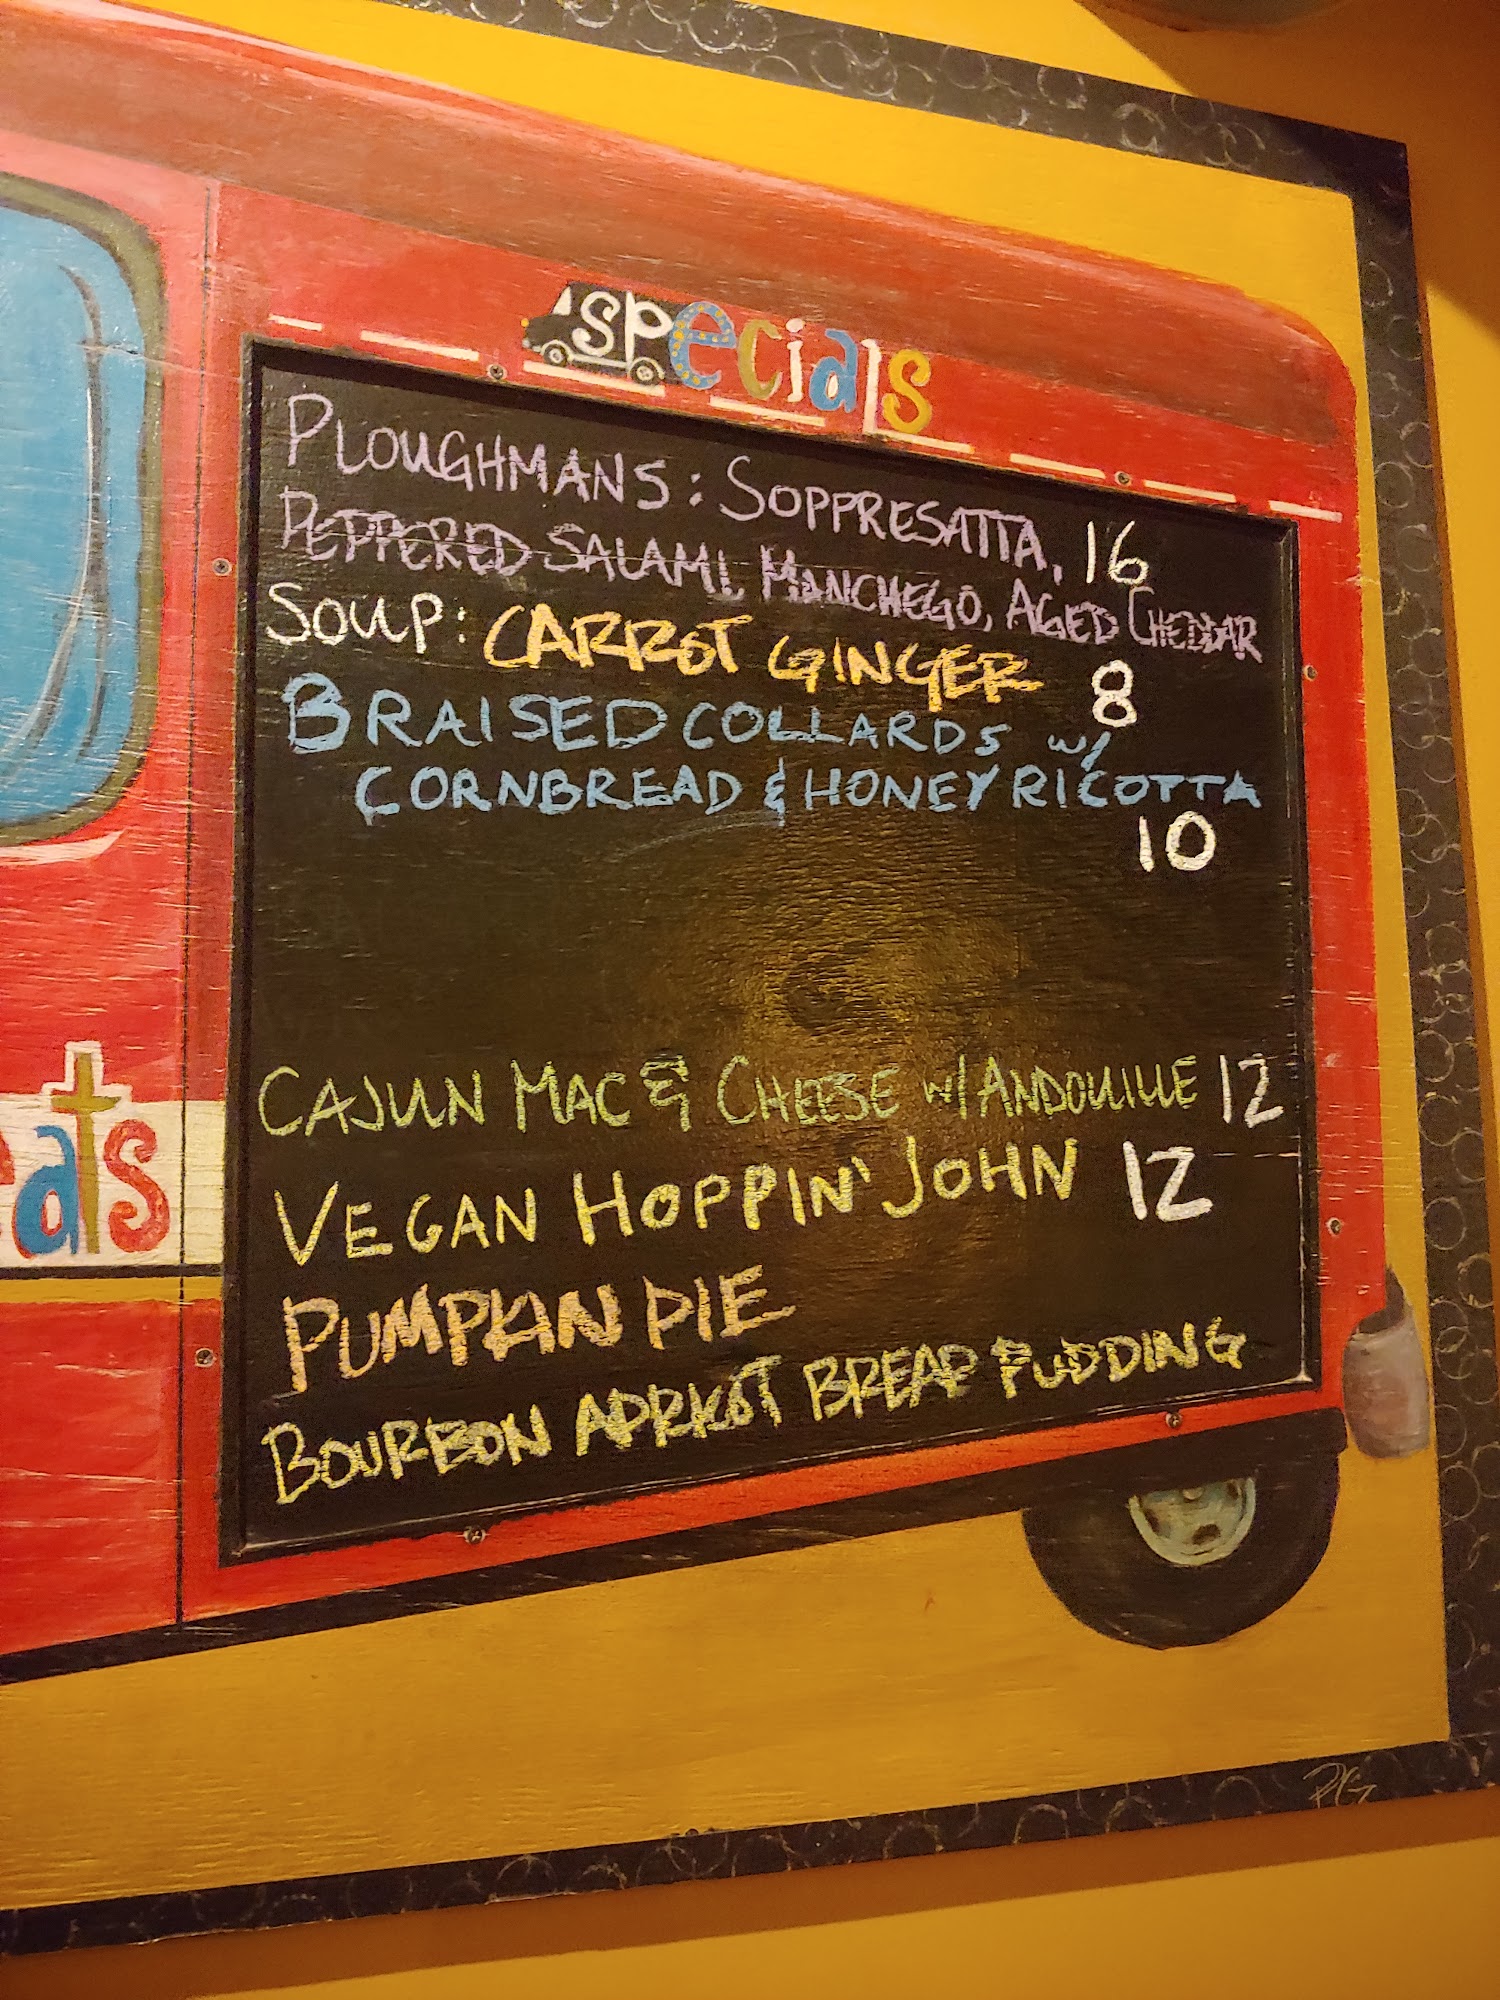 specials
PLOUGHMANS: SOPPRESATTA, 16
PEPPERED SALAMI, MANCHEGO, AGED CHEDDAR
SOUP: CARROT GINGER 8
BRAISED COLLARDS w/
CORNBREAD & HONEY RICOTTA
10
CAJUN MAC & CHEESE w/ ANDOUILLE 12
VEGAN HOPPIN' JOHN 12
PUMPKIN PIE
BOURBON APRICOT BREAD PUDDING
eats